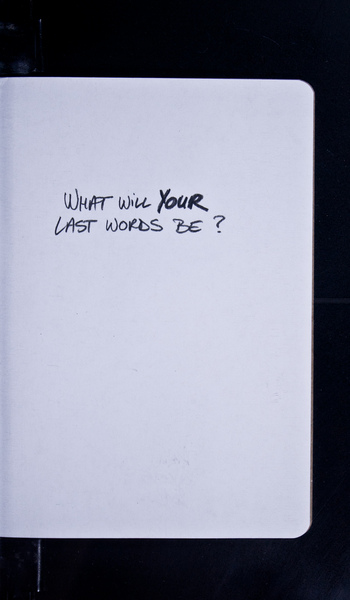 WHAT WILL YOUR
LAST WORDS BE ?